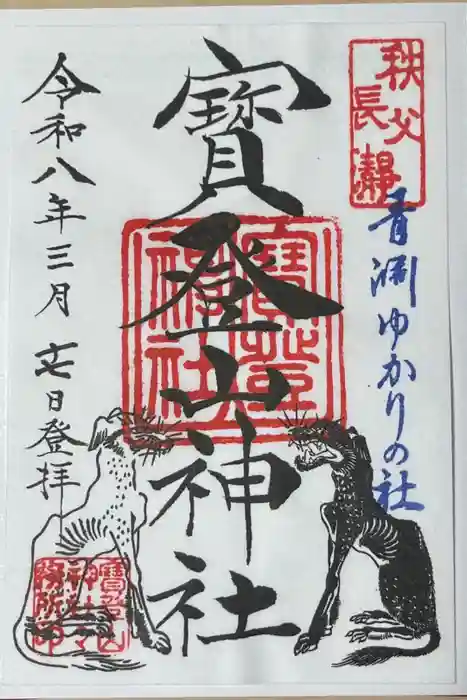 秩父
長瀞
青淵ゆかりの社
寳登山神社
寳登山
神社
令和八年三月廿七日登拝
寳登山
神社々
務所印